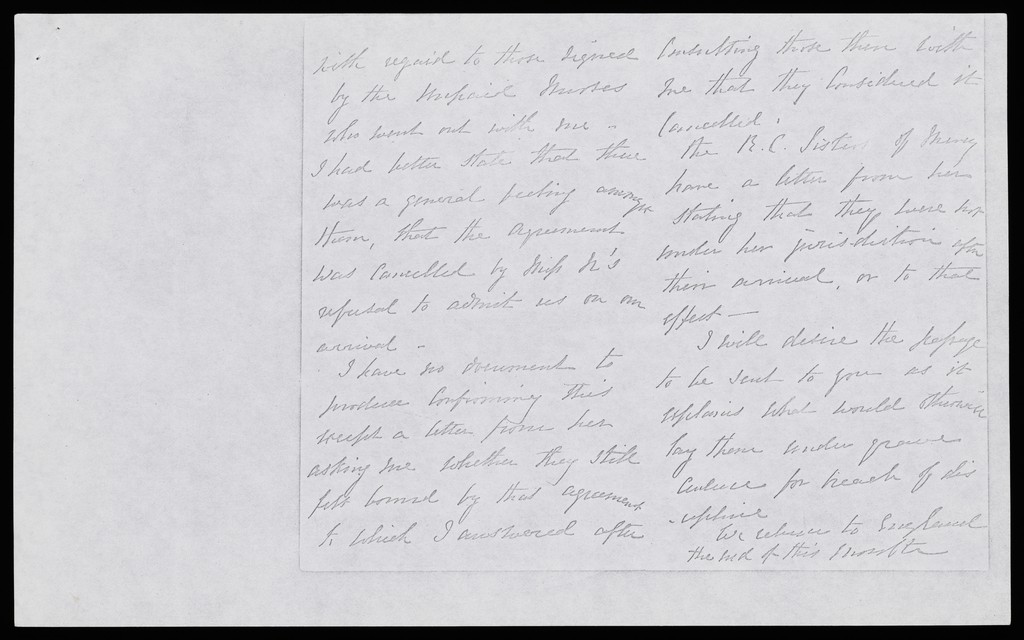 with regard to those signed
by the unpaid Nurses
who went out with me -
I had better state that there
was a general feeling amongst
them, that the agreement
was cancelled by Miss N's
refusal to admit us on our
arrival -
I have no document to
produce confirming this
except a letter from her
asking me whether they still
felt bound by that agreement
to which I answered after
Consulting those then with
me that they Considered it
Cancelled.
The R.C. Sisters of Mercy
have a letter from her
stating that they were not
under her jurisdiction after
their arrival, or to that
effect —
I will desire the
to be sent to you as it
explains what would otherwise
lay them under grave
censure for breach of dis
-cipline
We return to England
the end of this month